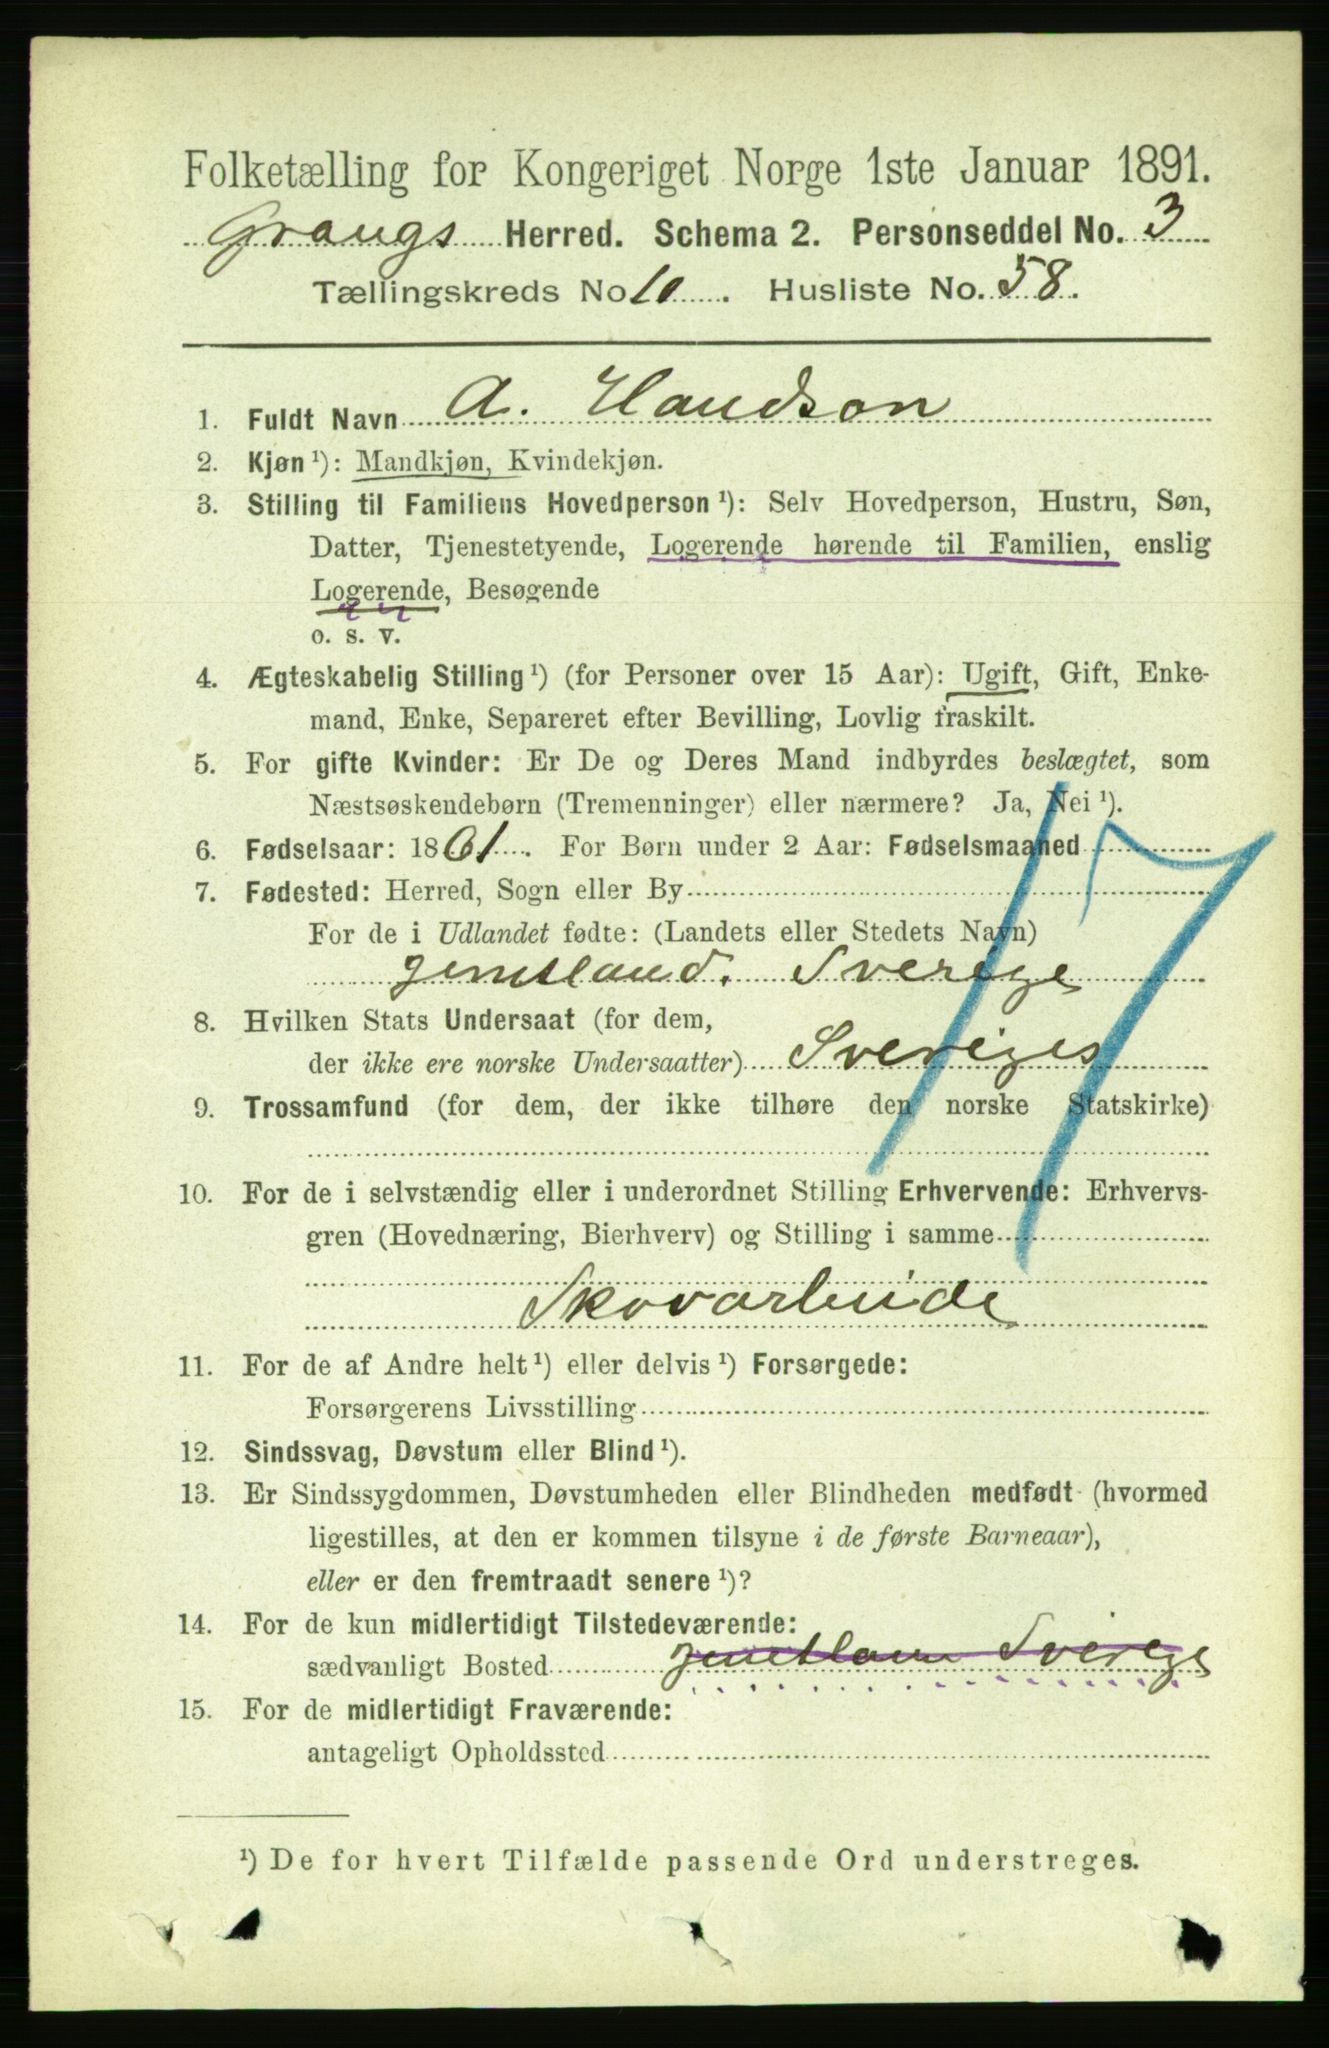 Folketælling for Kongeriget Norge 1ste Januar 1891.
Grongs Herred. Schema 2. Personseddel No. 3
Tællingskreds No 10. Husliste No. 58.
1. Fuldt Navn A. Handson
2. Kjøn ¹): Mandkjøn, Kvindekjøn.
3. Stilling til Familiens Hovedperson ¹): Selv Hovedperson, Hustru, Søn,
Datter, Tjenestetyende, Logerende hørende til Familien, enslig
Logerende, Besøgende
o. s. v.
4. Ægteskabelig Stilling ¹) (for Personer over 15 Aar): Ugift, Gift, Enke-
mand, Enke, Separeret efter Bevilling, Lovlig fraskilt.
5. For gifte Kvinder: Er De og Deres Mand indbyrdes beslægtet, som
Næstsøskendebørn (Tremenninger) eller nærmere? Ja, Nei ¹).
6. Fødselsaar: 1861. For Børn under 2 Aar: Fødselsmaaned
7. Fødested: Herred, Sogn eller By
For de i Udlandet fødte: (Landets eller Stedets Navn)
Jemtland. Sverige
17
8. Hvilken Stats Undersaat (for dem,
der ikke ere norske Undersaatter) Sveriges
9. Trossamfund (for dem, der ikke tilhøre den norske Statskirke)
10. For de i selvstændig eller i underordnet Stilling Erhvervende: Erhvervs-
gren (Hovednæring, Bierhverv) og Stilling i samme
Skovarbeide
11. For de af Andre helt ¹) eller delvis ¹) Forsørgede:
Forsørgerens Livsstilling
12. Sindssvag, Døvstum eller Blind ¹).
13. Er Sindssygdommen, Døvstumheden eller Blindheden medfødt (hvormed
ligestilles, at den er kommen tilsyne i de første Barneaar),
eller er den fremtraadt senere ¹)?
14. For de kun midlertidigt Tilstedeværende:
sædvanligt Bosted Jemtland Sverige
15. For de midlertidigt Fraværende:
antageligt Opholdssted
¹) De for hvert Tilfælde passende Ord understreges.